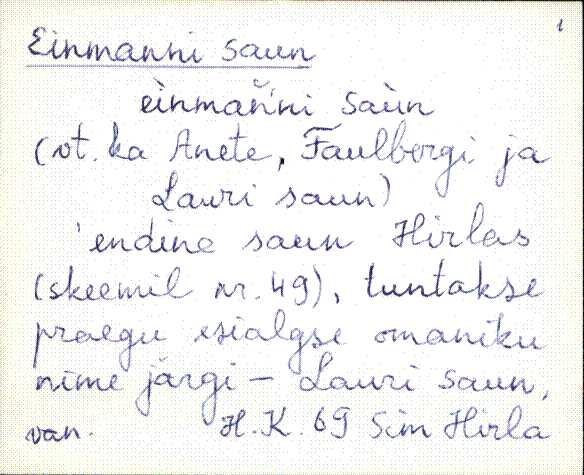 1
Einmanni saun
èinmaňni saùn
(vt. ka Anete, Faulbergi ja
Lauri saun)
'endine saun Hirlas
(skeemil nr. 49), tuntakse
praegu esialgse omaniku
nime järgi – Lauri saun,
van. H.K. 69 Sim Hirla